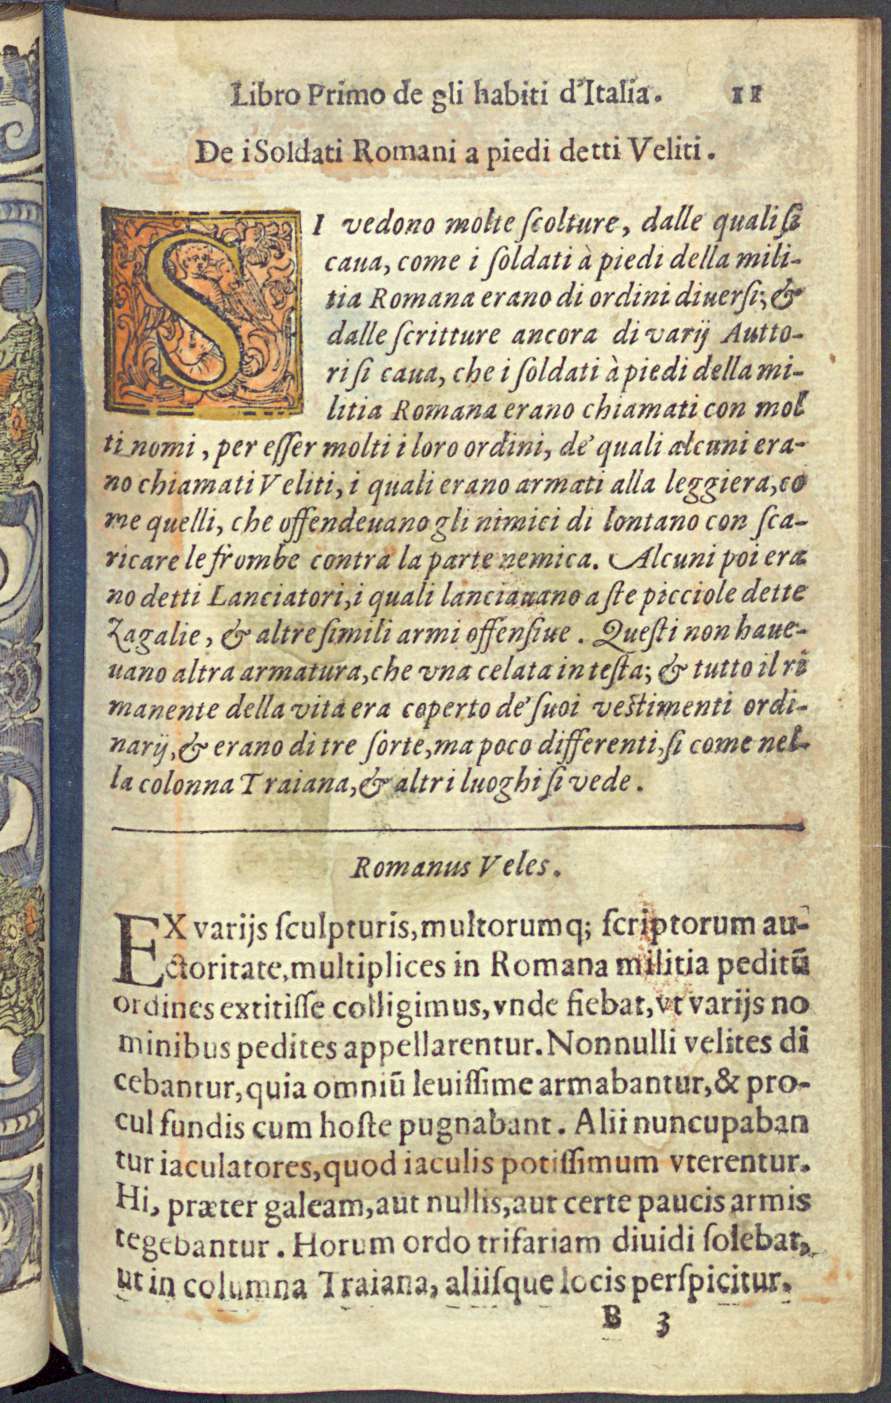 Libro Primo de gli habiti d'Italia. 11
De i Soldati Romani a piedi detti Veliti.
SI vedono molte ſcolture, dalle quali ſi
caua, come i ſoldati à piedi della mili-
tia Romana erano di ordini diuerſi; &
dalle ſcritture ancora di varij Autto-
ri ſi caua, che i ſoldati à piedi della mi-
litia Romana erano chiamati con mol
ti nomi, per eſſer molti i loro ordini, de' quali alcuni era-
no chiamati Veliti, i quali erano armati alla leggiera, co
me quelli, che offendeuano gli nimici di lontano con ſca-
ricare le frombe contra la parte nemica. Alcuni poi era
no detti Lanciatori, i quali lanciauano aſte picciole dette
Zagalie, & altre ſimili armi offenſiue. Queſti non haue-
uano altra armatura, che vna celata in teſta; & tutto il ri
manente della vita era coperto de' ſuoi veſtimenti ordi-
narij, & erano di tre ſorte, ma poco differenti, ſi come nel-
la colonna Traiana, & altri luoghi ſi vede.
Romanus Veles.
EX varijs ſculpturis, multorumq; ſcriptorum au-
ctoritate, multiplices in Romana militia peditū
ordines extitiſſe colligimus, vnde fiebat, vt varijs no
minibus pedites appellarentur. Nonnulli velites di
cebantur, quia omniū leuiſſime armabantur, & pro-
cul fundis cum hoſte pugnabant. Alii nuncupaban
tur iaculatores, quod iaculis potiſſimum vterentur.
Hi, præter galeam, aut nullis, aut certe paucis armis
tegebantur. Horum ordo trifariam diuidi ſolebat,
ut in columna Traiana, aliiſque locis perſpicitur.
B 3